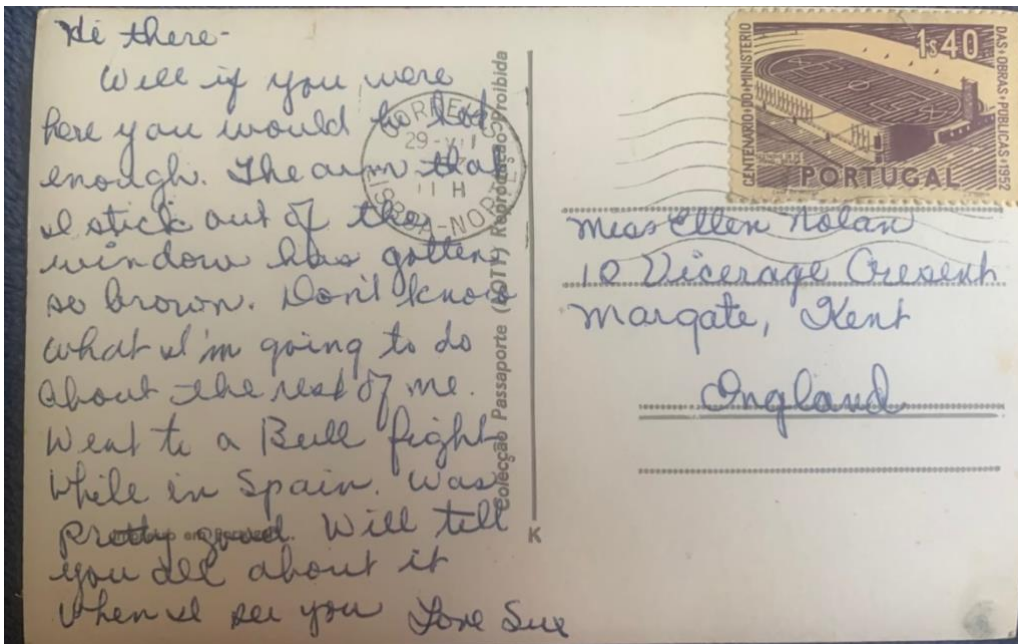 Hi there-
Will if you were
here you would be hot
enough. The arm that
I stick out of the
window has gotten
so brown. Don't know
what I'm going to do
about the rest of me.
Went to a Bull fight
While in Spain. Was
Pretty good. Will tell
you all about it
When I see you Love Sue
Colecção Passaporte (LOTY) Reprodução Proibida
K
CORREIOS
29-VII
11 H
LISBOA-NORTE
CENTENARIO DO MINISTERIO
DAS OBRAS PUBLICAS 1952
1$40
PORTUGAL
Miss Ellen Nolan
10 Vicerage Cresent
Margate, Kent
England